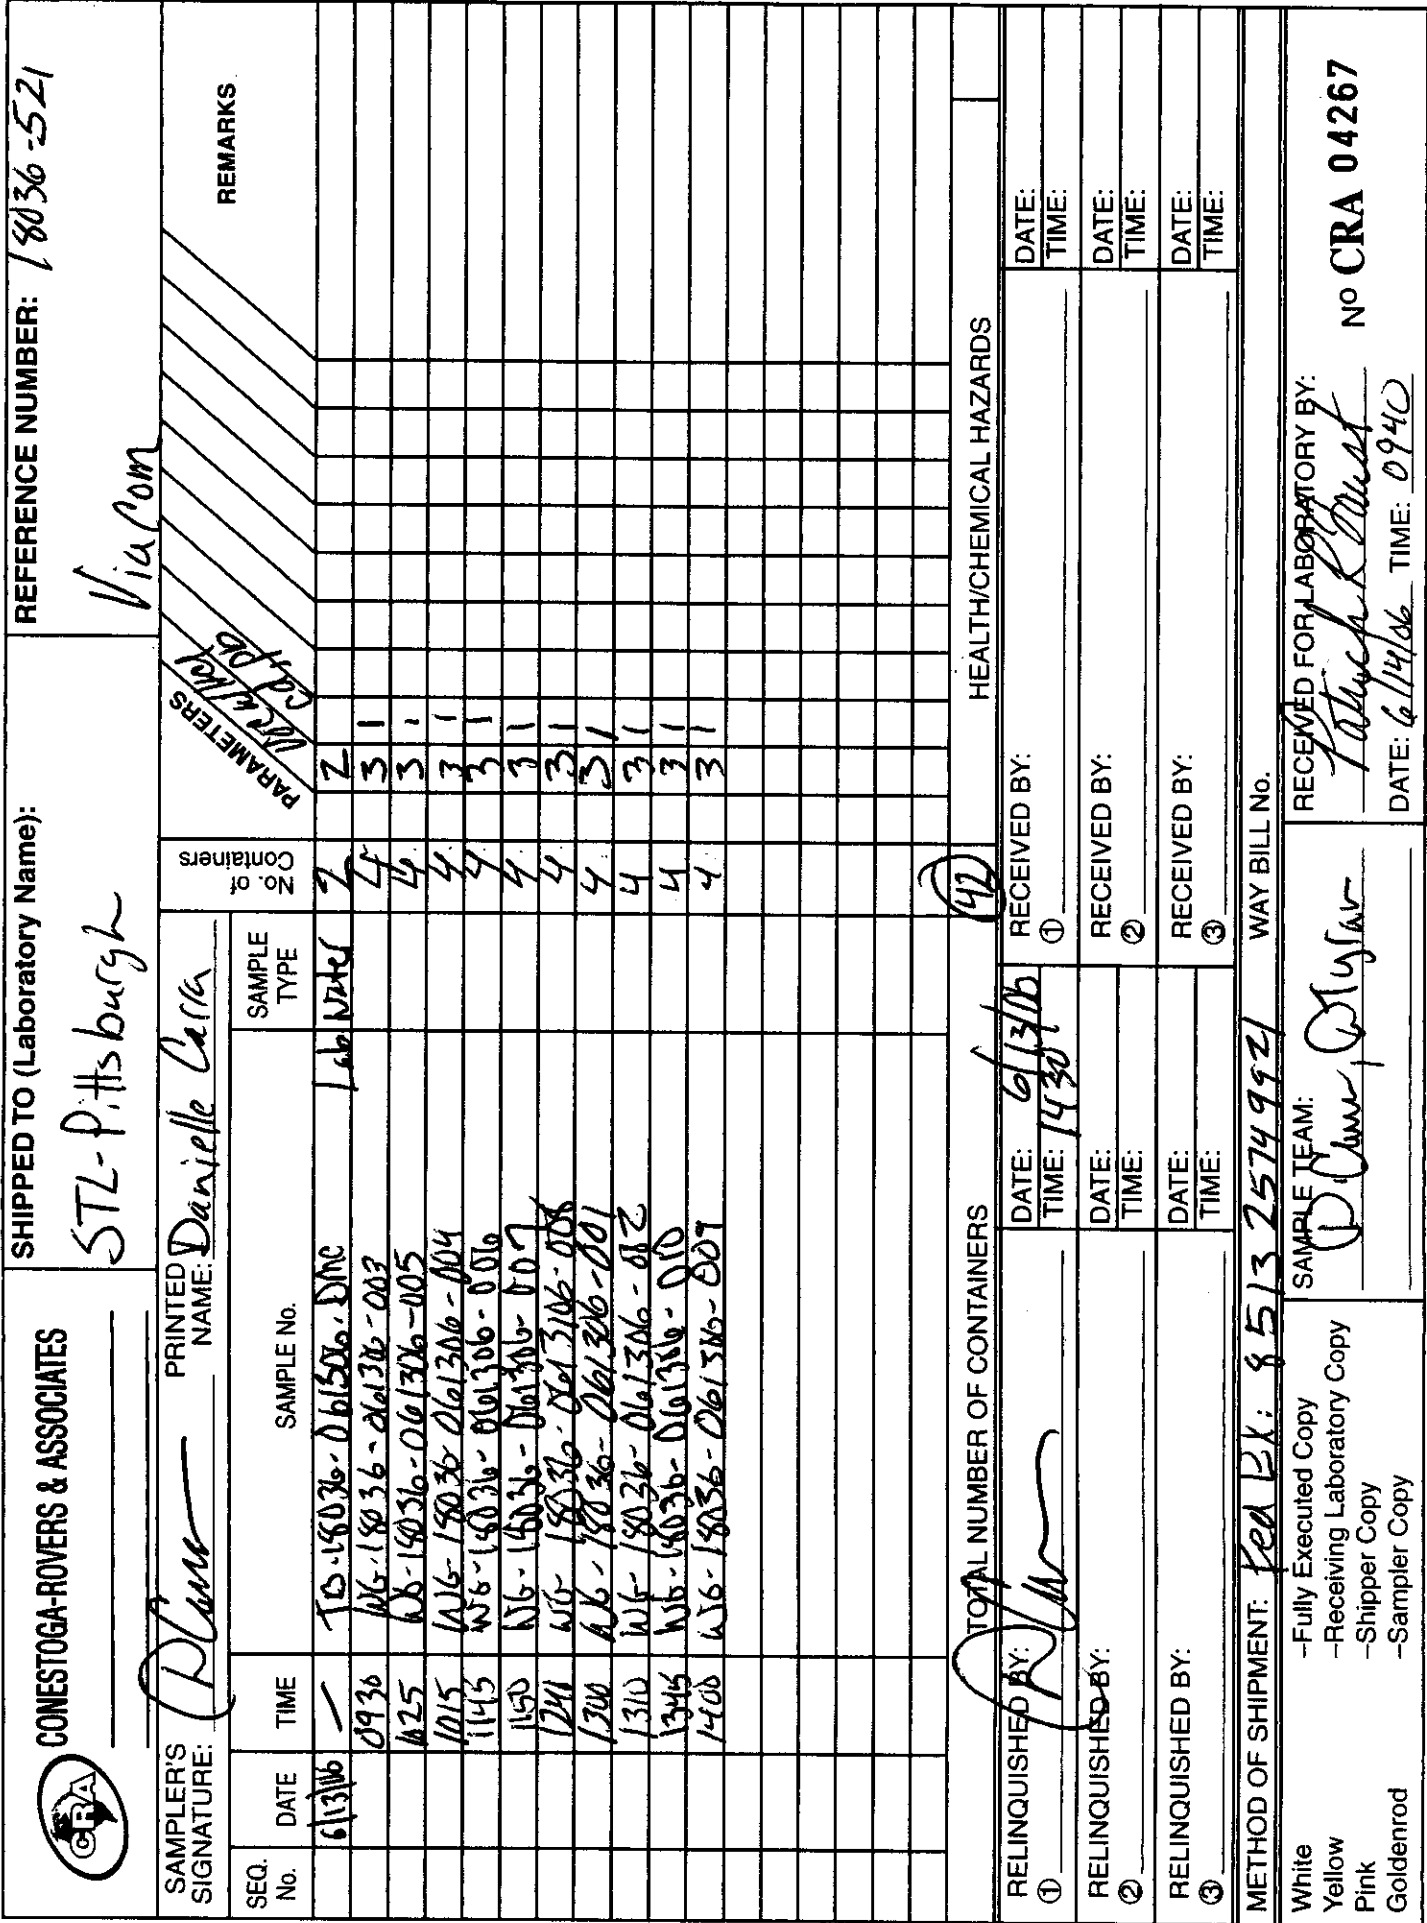 CRA CONESTOGA-ROVERS & ASSOCIATES
SHIPPED TO (Laboratory Name):
STL-Pittsburgh
REFERENCE NUMBER: 18036-521
Viacom
SAMPLER'S SIGNATURE:
PRINTED NAME: Danielle Carra
PARAMETERS
Cd, Pb
REMARKS
SEQ. No. DATE TIME SAMPLE No. SAMPLE TYPE No. of Containers
6/13/06 — TB-18036-061306-DMC Lab Water 2 2
0930 WG-18036-061306-003 4 3 1
1025 WG-18036-061306-005 4 3 1
1015 WG-18036-061306-004 4 3 1
1145 WG-18036-061306-006 4 3 1
1150 WG-18036-061306-007 4 3 1
WG-18036-061306-008 4 3 1
1300 WG-18036-061306-001 4 3 1
1310 WG-18036-061306-002 4 3 1
1345 WG-18036-061306-010 4 3 1
1400 WG-18036-061306-009 4 3 1
TOTAL NUMBER OF CONTAINERS 42 HEALTH/CHEMICAL HAZARDS
RELINQUISHED BY: DATE: 6/13/06 RECEIVED BY: DATE:
① TIME: 1430 ① TIME:
RELINQUISHED BY: DATE: RECEIVED BY: DATE:
② TIME: ② TIME:
RELINQUISHED BY: DATE: RECEIVED BY: DATE:
③ TIME: ③ TIME:
METHOD OF SHIPMENT: Fed EX: 8513 2574 9921 WAY BILL No.
White –Fully Executed Copy
Yellow –Receiving Laboratory Copy
Pink –Shipper Copy
Goldenrod –Sampler Copy
SAMPLE TEAM:
RECEIVED FOR LABORATORY BY:
DATE: 6/14/06 TIME: 0940
Nº CRA 04267